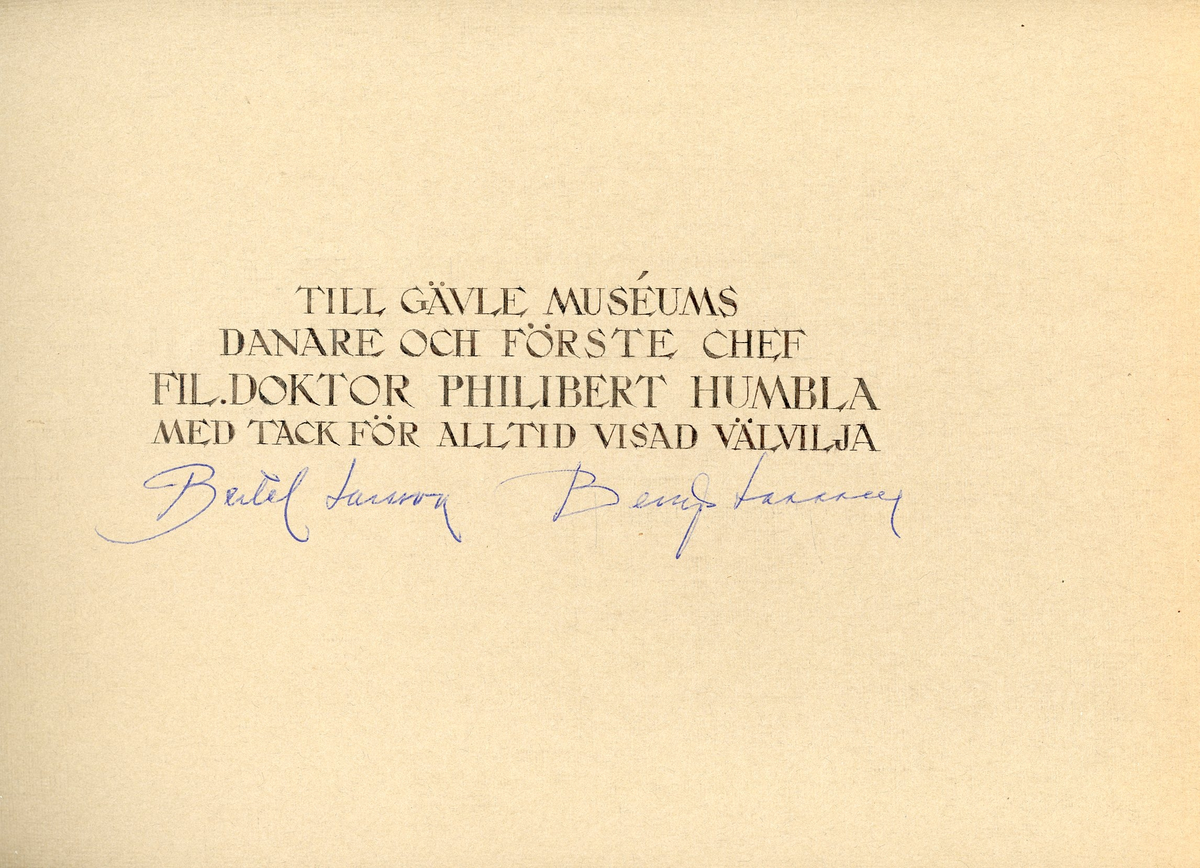 TILL GÄVLE MUSÉUMS
DANARE OCH FÖRSTE CHEF
FIL. DOKTOR PHILIBERT HUMBLA
MED TACK FÖR ALLTID VISAD VÄLVILJA
Bertel Larsson